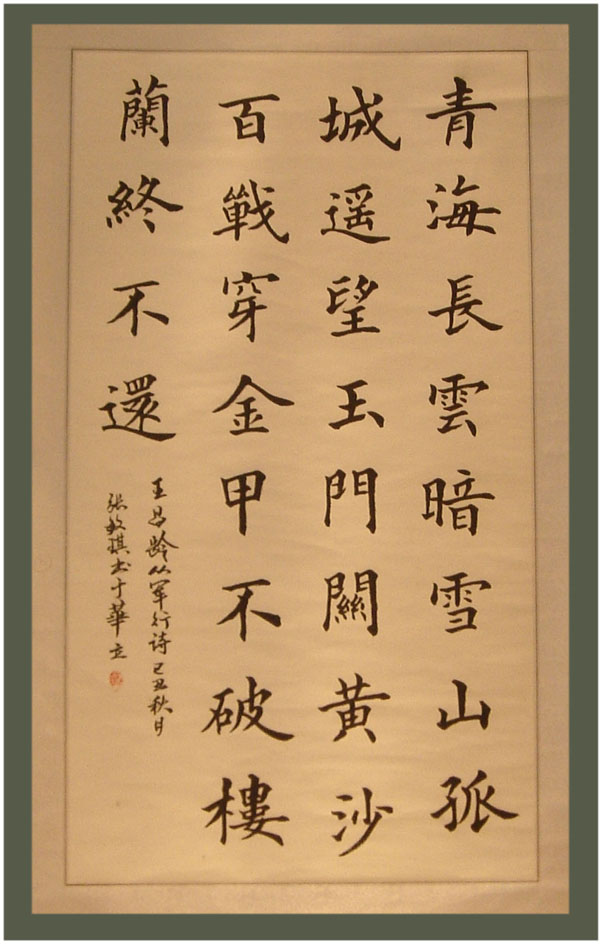 青海長雲暗雪山孤
城遥望玉門關黄沙
百戰穿金甲不破樓
蘭終不還
王昌龄从军行诗己丑秋日
张敏琪书于華立